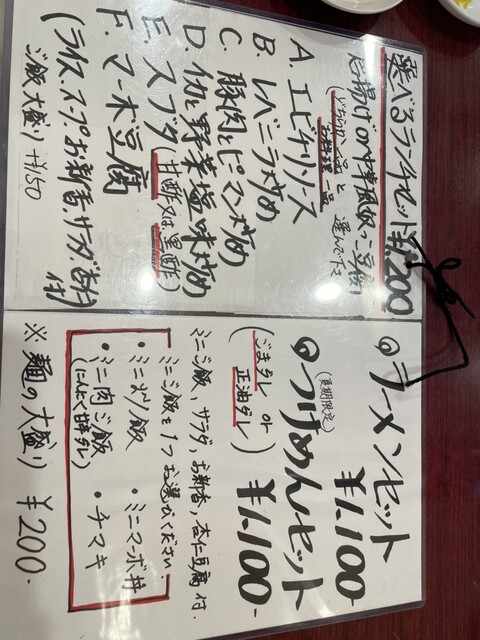 選べるランチセット ¥1,200
唐揚げ or 中華風奴こ豆腐
(どちらか一品と お料理一品 選んで下さい)
A. エビチリソース
B. レバニラ炒め
C. 豚肉とピーマン炒め
D. イカと野菜塩味炒め
E. スブタ (甘酢又は黒酢)
F. マーボ豆腐
(ライス、スープ、お新香、サラダ、杏仁付)
ご飯大盛り +¥150
◎ラーメンセット
¥1,100-
◎つけめんセット
(夏期限定)
¥1,100-
(ごまタレ or 正油タレ)
ミニご飯、サラダ、お新香、杏仁豆腐付.
ミニご飯を1つお選びください.
・ミニ炒飯
・ミニマーボ丼
・ミニ肉ご飯
(にんにく甘辛タレ)
・チマキ
※ 麺の大盛り ¥200-